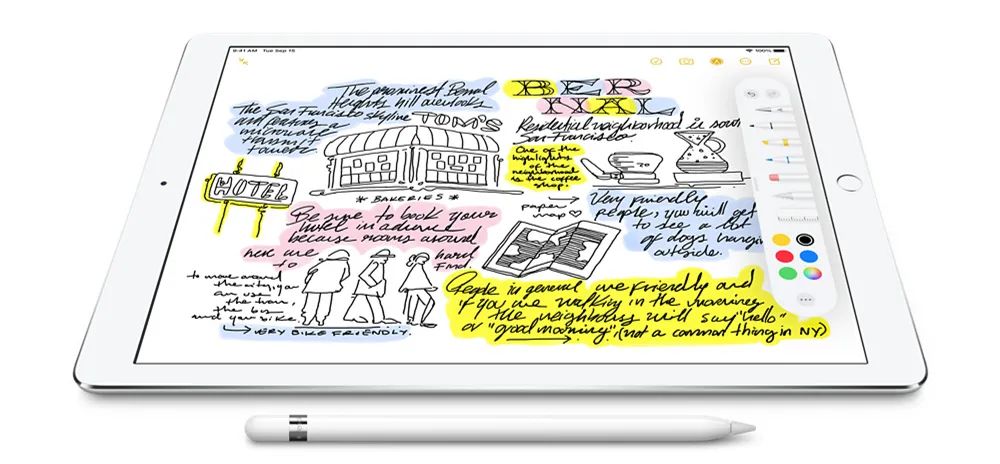 9:41 AM Tue Sep 15
100%
The prominent Bernal
Heights hill overlooks
The San Francisco skyline
and features a
microwave
transmit
tower.
TOM'S
* BAKERIES *
HOTEL
BER
NAL
Residential neighborhood in sou
San Francisco.
One of the
highlights
of the
neighborhood
is the coffee
shop.
paper
map ♡
Very friendly
people, you will get
to see a lot
of dogs hanging
outside.
Be sure to book your
hotel in advance
because rooms around
here are hard
to find
to move around
the city, you
can use
the train,
the bus
and your bike.
VERY BIKE FRIENDLY.
People in general are friendly and
if you are walking in the morning
the neighbours will say "hello"
or "good morning". (not a common thing in NY)